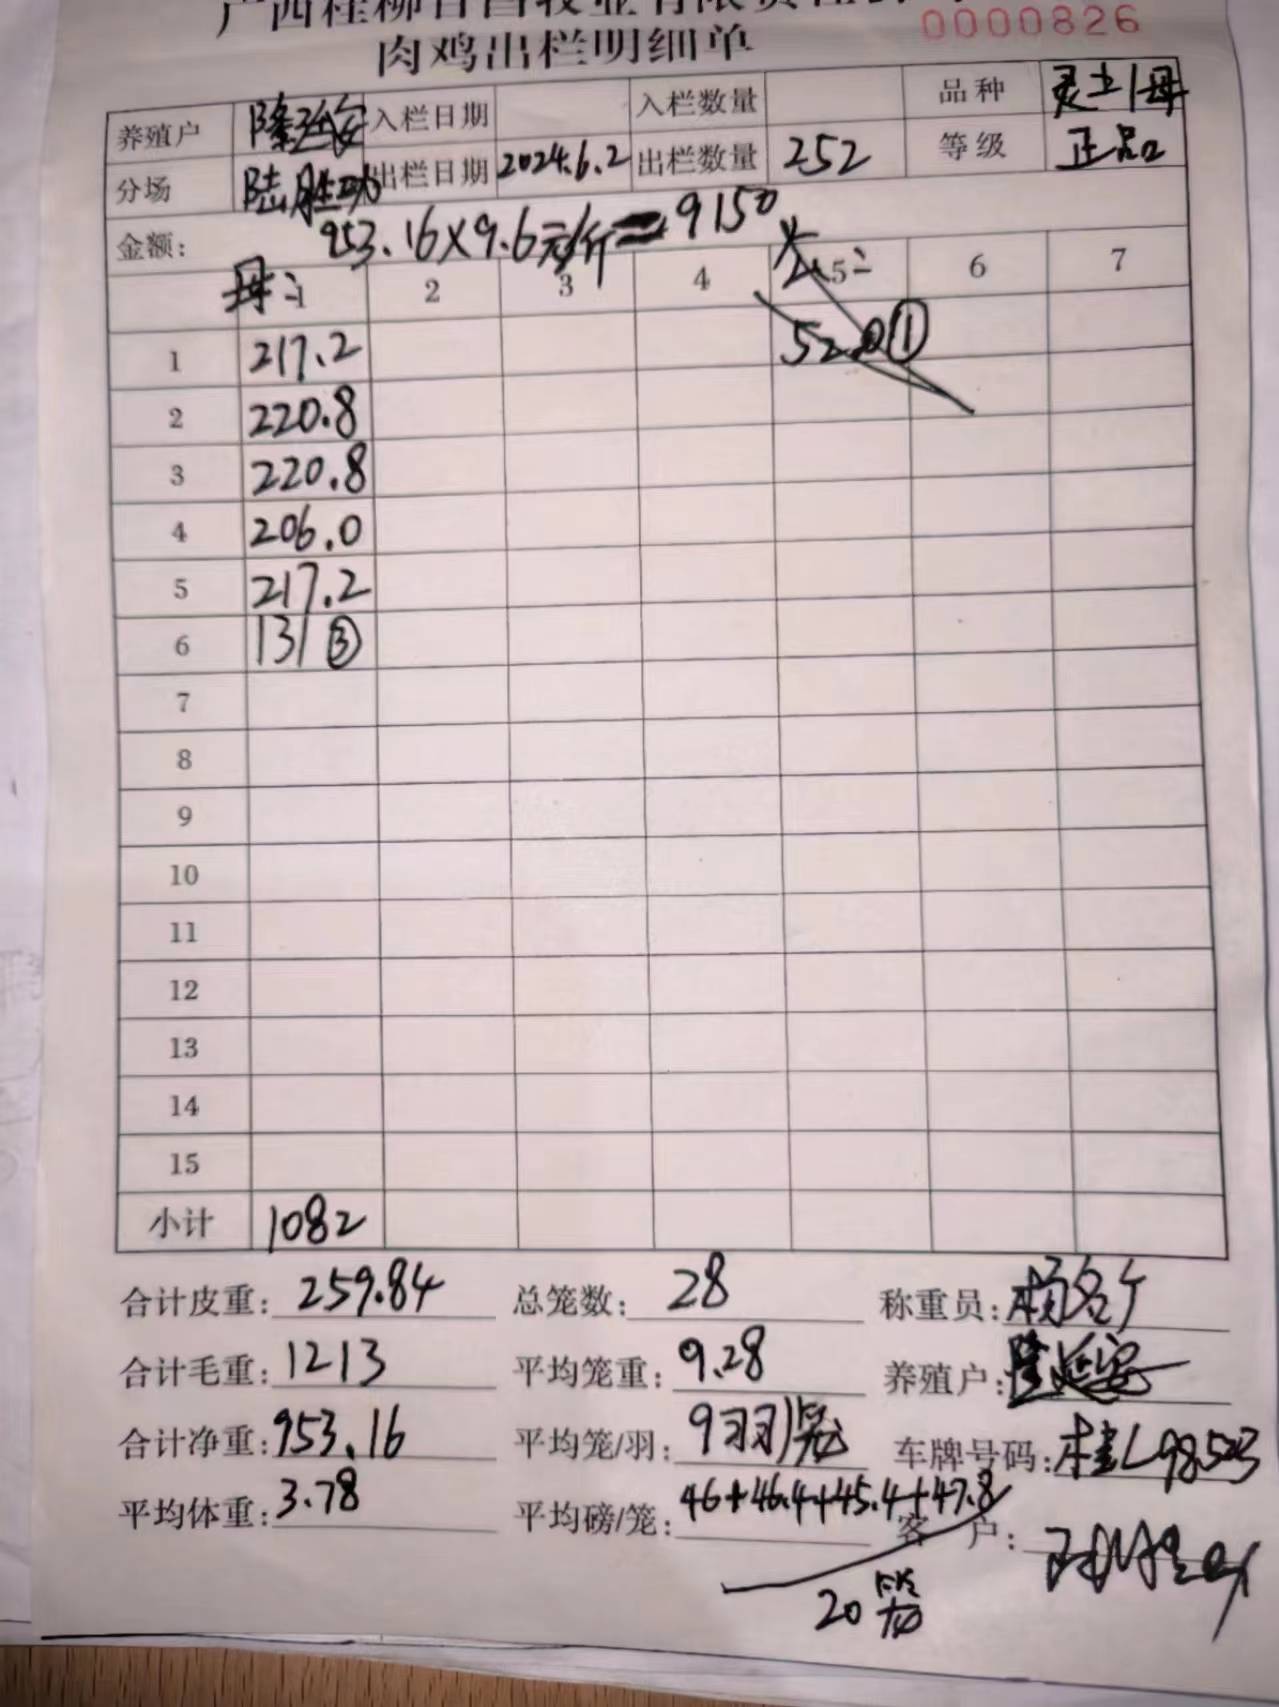 肉鸡出栏明细单
0000826
养殖户 入栏日期 入栏数量 品种 灵土1母
分场 陆胜功 出栏日期 2024.6.2 出栏数量 252 等级 正品
金额: 953.16×9.6元/斤=9150
母: 1 2 3 4 5 6 7
1 217.2 52.0①
2 220.8
3 220.8
4 206.0
5 217.2
6 131③
7
8
9
10
11
12
13
14
15
小计 1082
合计皮重: 259.84 总笼数: 28 称重员:
合计毛重: 1213 平均笼重: 9.28 养殖户:
合计净重: 953.16 平均笼/羽: 9羽/笼 车牌号码: 桂L98523
平均体重: 3.78 平均磅/笼: 46+46.4+45.4+47.8 客户:
20